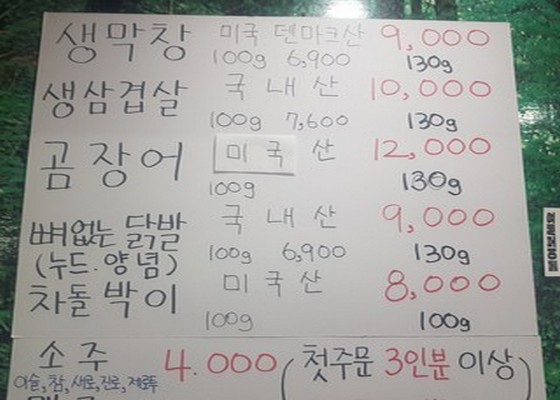 생막창 미국 덴마크산 9,000
100g 6,900 130g
생삼겹살 국내산 10,000
100g 7,600 130g
곰장어 미국산 12,000
100g 130g
뼈없는 닭발 국내산 9,000
(누드.양념) 100g 6,900 130g
차돌박이 미국산 8,000
100g 100g
소주 4.000 (첫주문 3인분 이상)
이슬,참,새로,진로,제로투